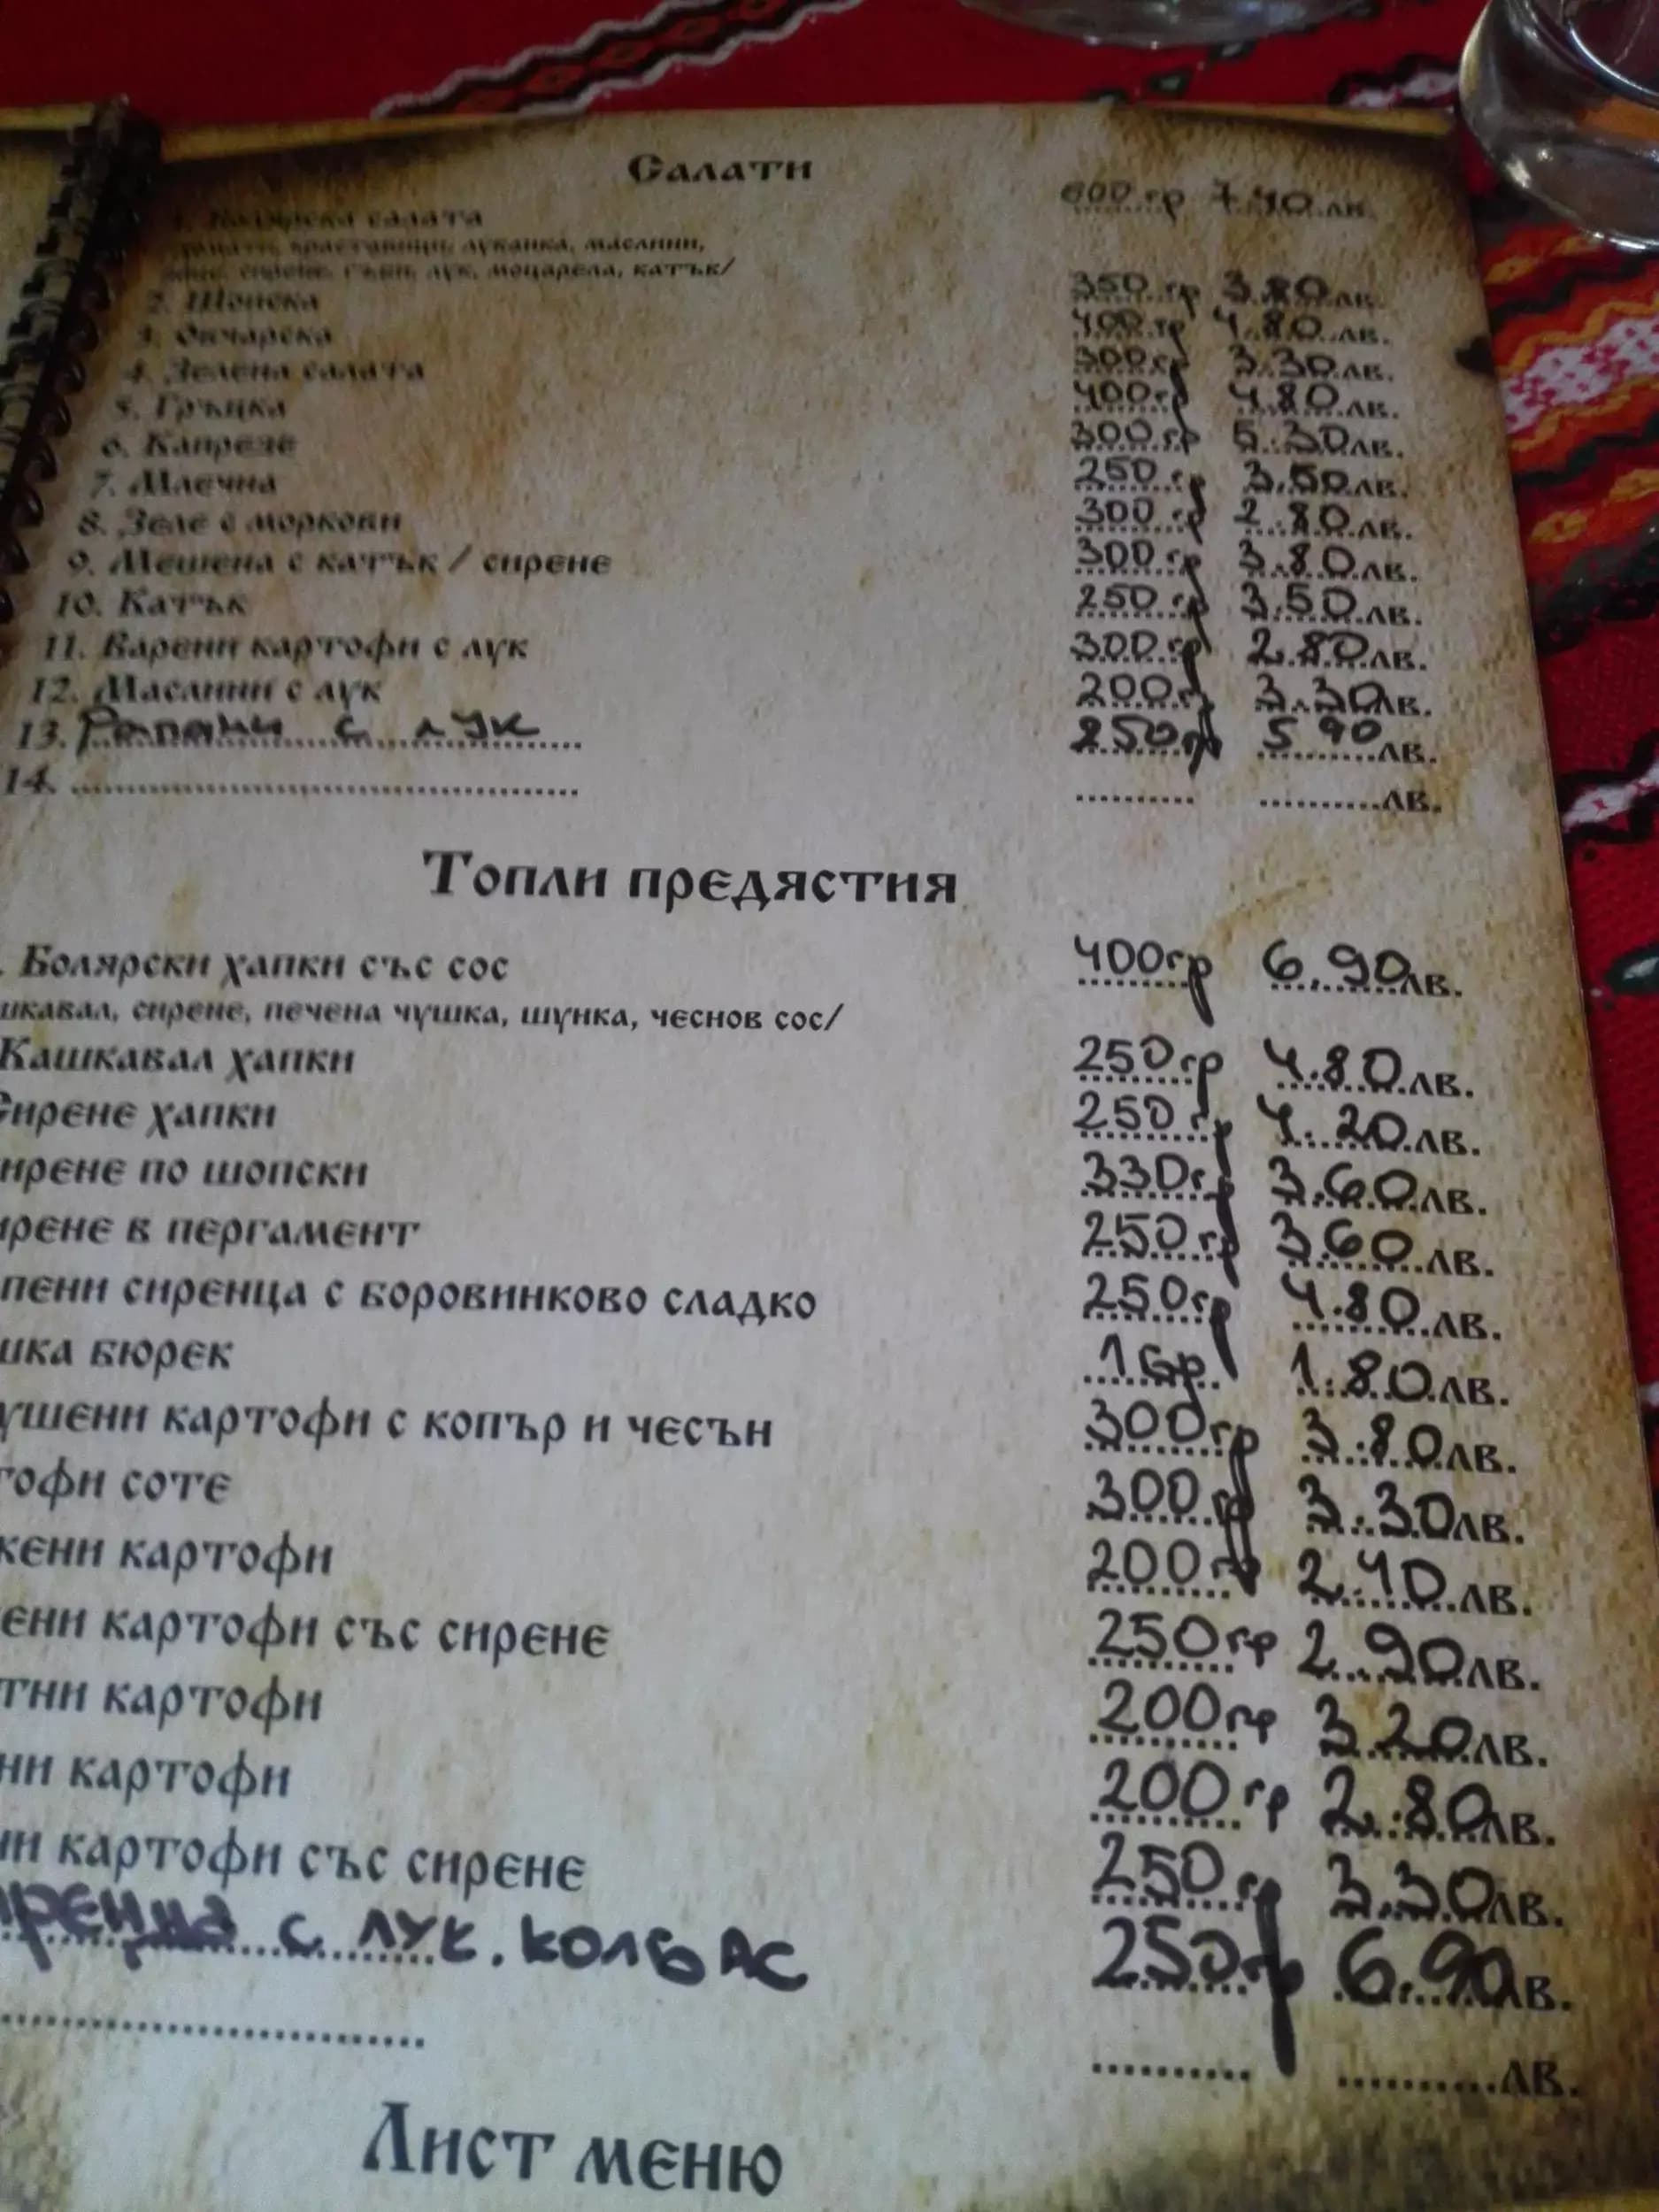 Салати
салата 600 гр 7.40 лв.
краставици, луканка, маслини,
сирене, гъби, лук, моцарела, катък/
2. Шопска 350 гр 3.80 лв.
3. Овчарска 400 гр 4.80 лв.
4. Зелена салата 300 гр 3.30 лв.
5. Гръцка 400 гр 4.80 лв.
6. Капрезе 300 гр 5.30 лв.
7. Млечна 250 гр 3.50 лв.
8. Зеле с моркови 300 гр 2.80 лв.
9. Мешена с катък / сирене 300 гр 3.80 лв.
10. Катък 250 гр 3.50 лв.
11. Варени картофи с лук 300 гр 2.80 лв.
12. Маслини с лук 200 гр 3.30 лв.
13. Рапани с лук 250 гр 5 90 лв.
14. .......... лв.
Топли предястия
. Болярски хапки със сос 400 гр 6.90 лв.
шкавал, сирене, печена чушка, шунка, чеснов сос/
Кашкавал хапки 250 гр 4.80 лв.
Сирене хапки 250 гр 4.20 лв.
ирене по шопски 330 гр 3.60 лв.
ирене в пергамент 250 гр 3.60 лв.
пени сиренца с боровинково сладко 250 гр 4.80 лв.
шка бюрек 1 бр 1.80 лв.
ушени картофи с копър и чесън 300 гр 3.80 лв.
тофи соте 300 гр 3.30 лв.
жени картофи 200 гр 2.40 лв.
ени картофи със сирене 250 гр 2.90 лв.
тни картофи 200 гр 3.20 лв.
ни картофи 200 гр 2.80 лв.
ни картофи със сирене 250 гр 3.30 лв.
с лук. колбас 250 гр 6.90 лв.
.......... лв.
Лист меню